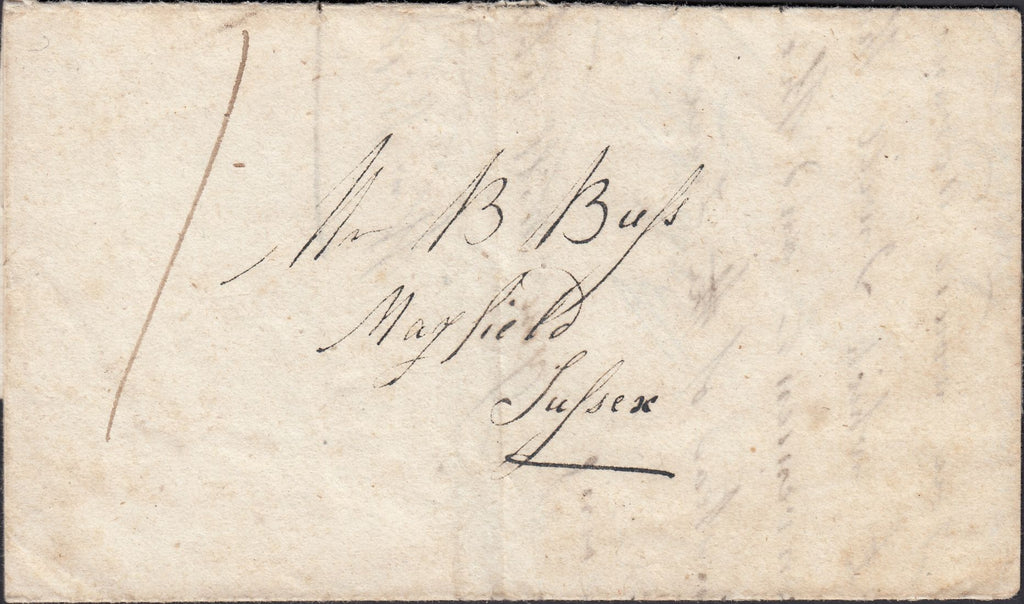 1
Mr B Buſs
Mayfield
Suſsex